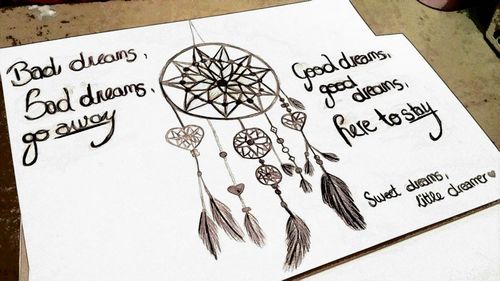 Bad dreams,
bad dreams,
go away
Good dreams,
good dreams,
here to stay
Sweet dreams,
little dreamer♥